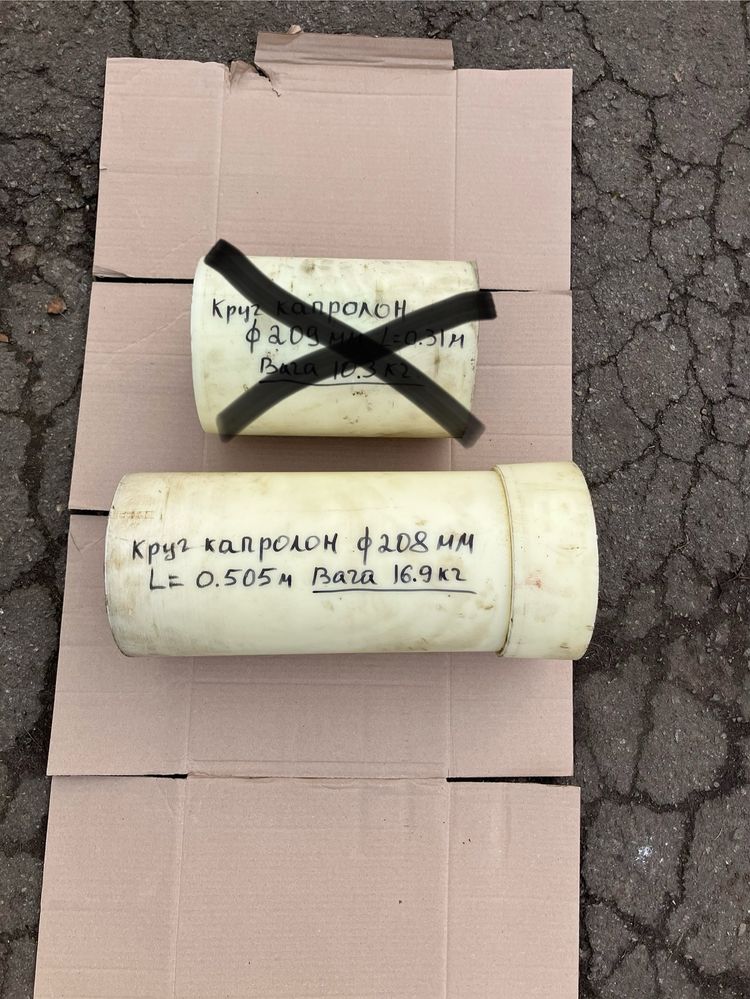 Круг капролон
ф 209 мм L=0.31м
Вага 10.3 кг
Круг капролон ф 208 мм
L= 0.505м Вага 16.9 кг